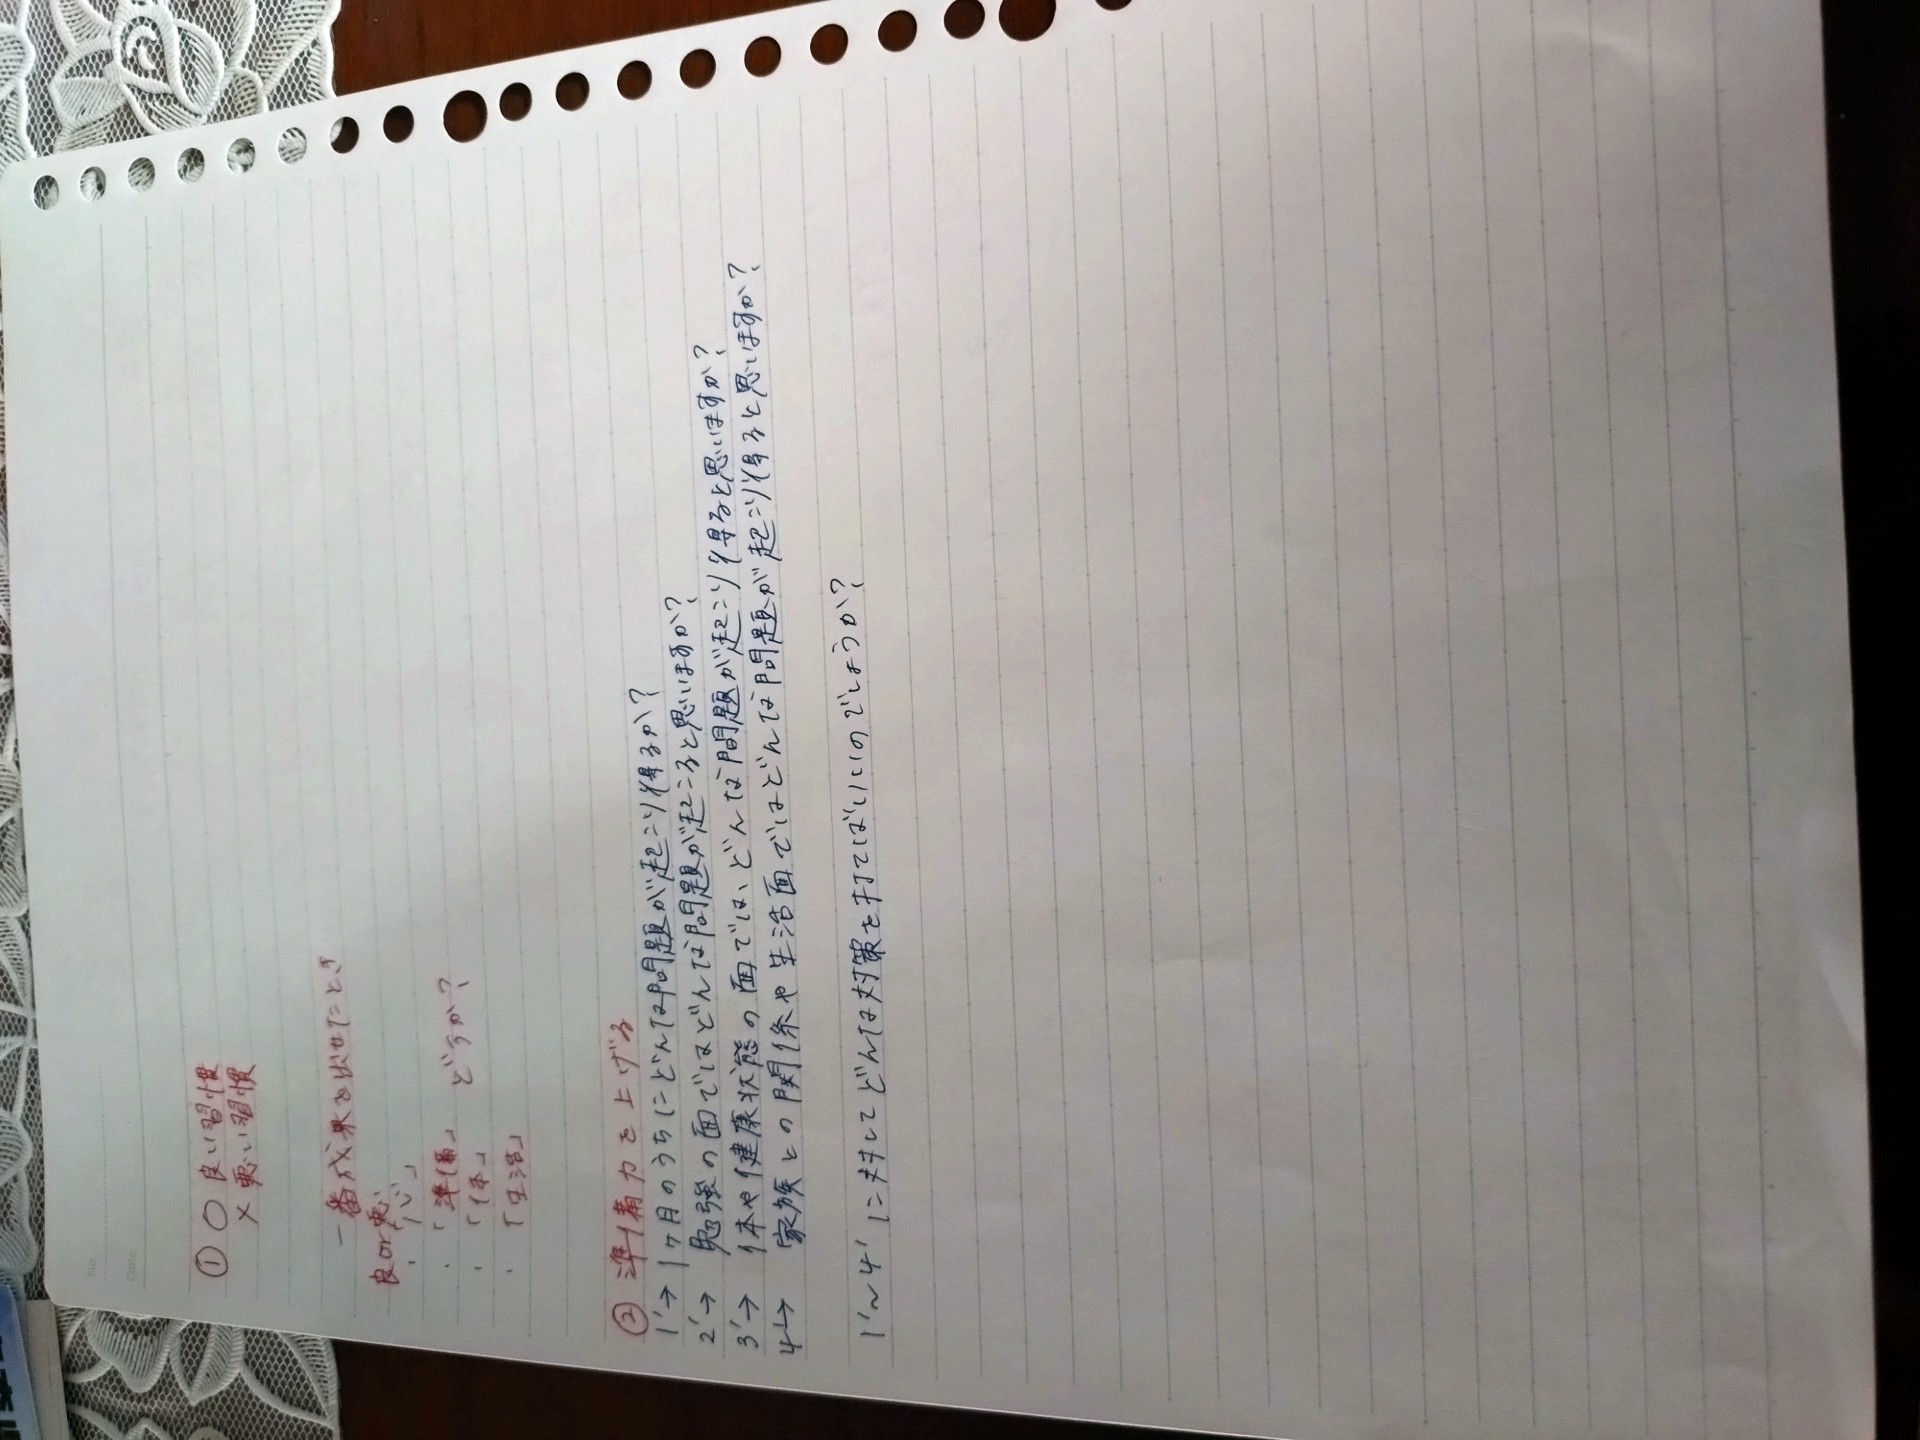 No.
Date
① ○ 良い習慣
× 悪い習慣
一番成果を出せたとき
良or悪
・「心」
・「準備」 どうか?
・「体」
・「生活」
② 準備力を上げる
1'→ 1ヶ月のうちにどんな問題が起こり得るか?
2'→ 勉強の面ではどんな問題が起こると思いますか?
3'→ 体や健康状態の面では、どんな問題が起こり得ると思いますか?
4'→ 家族との関係や生活面ではどんな問題が起こり得ると思いますか?
1'~4'に対してどんな対策を打てばいいのでしょうか?